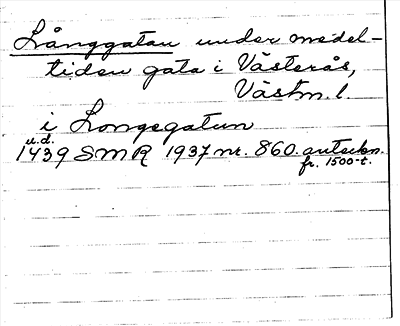 Långgatan under medel-
tiden gata i Västerås,
Västm. l.
i Longegatun
u.d.
1439 SMR 1937 nr. 860. anteckn.
fr. 1500-t.